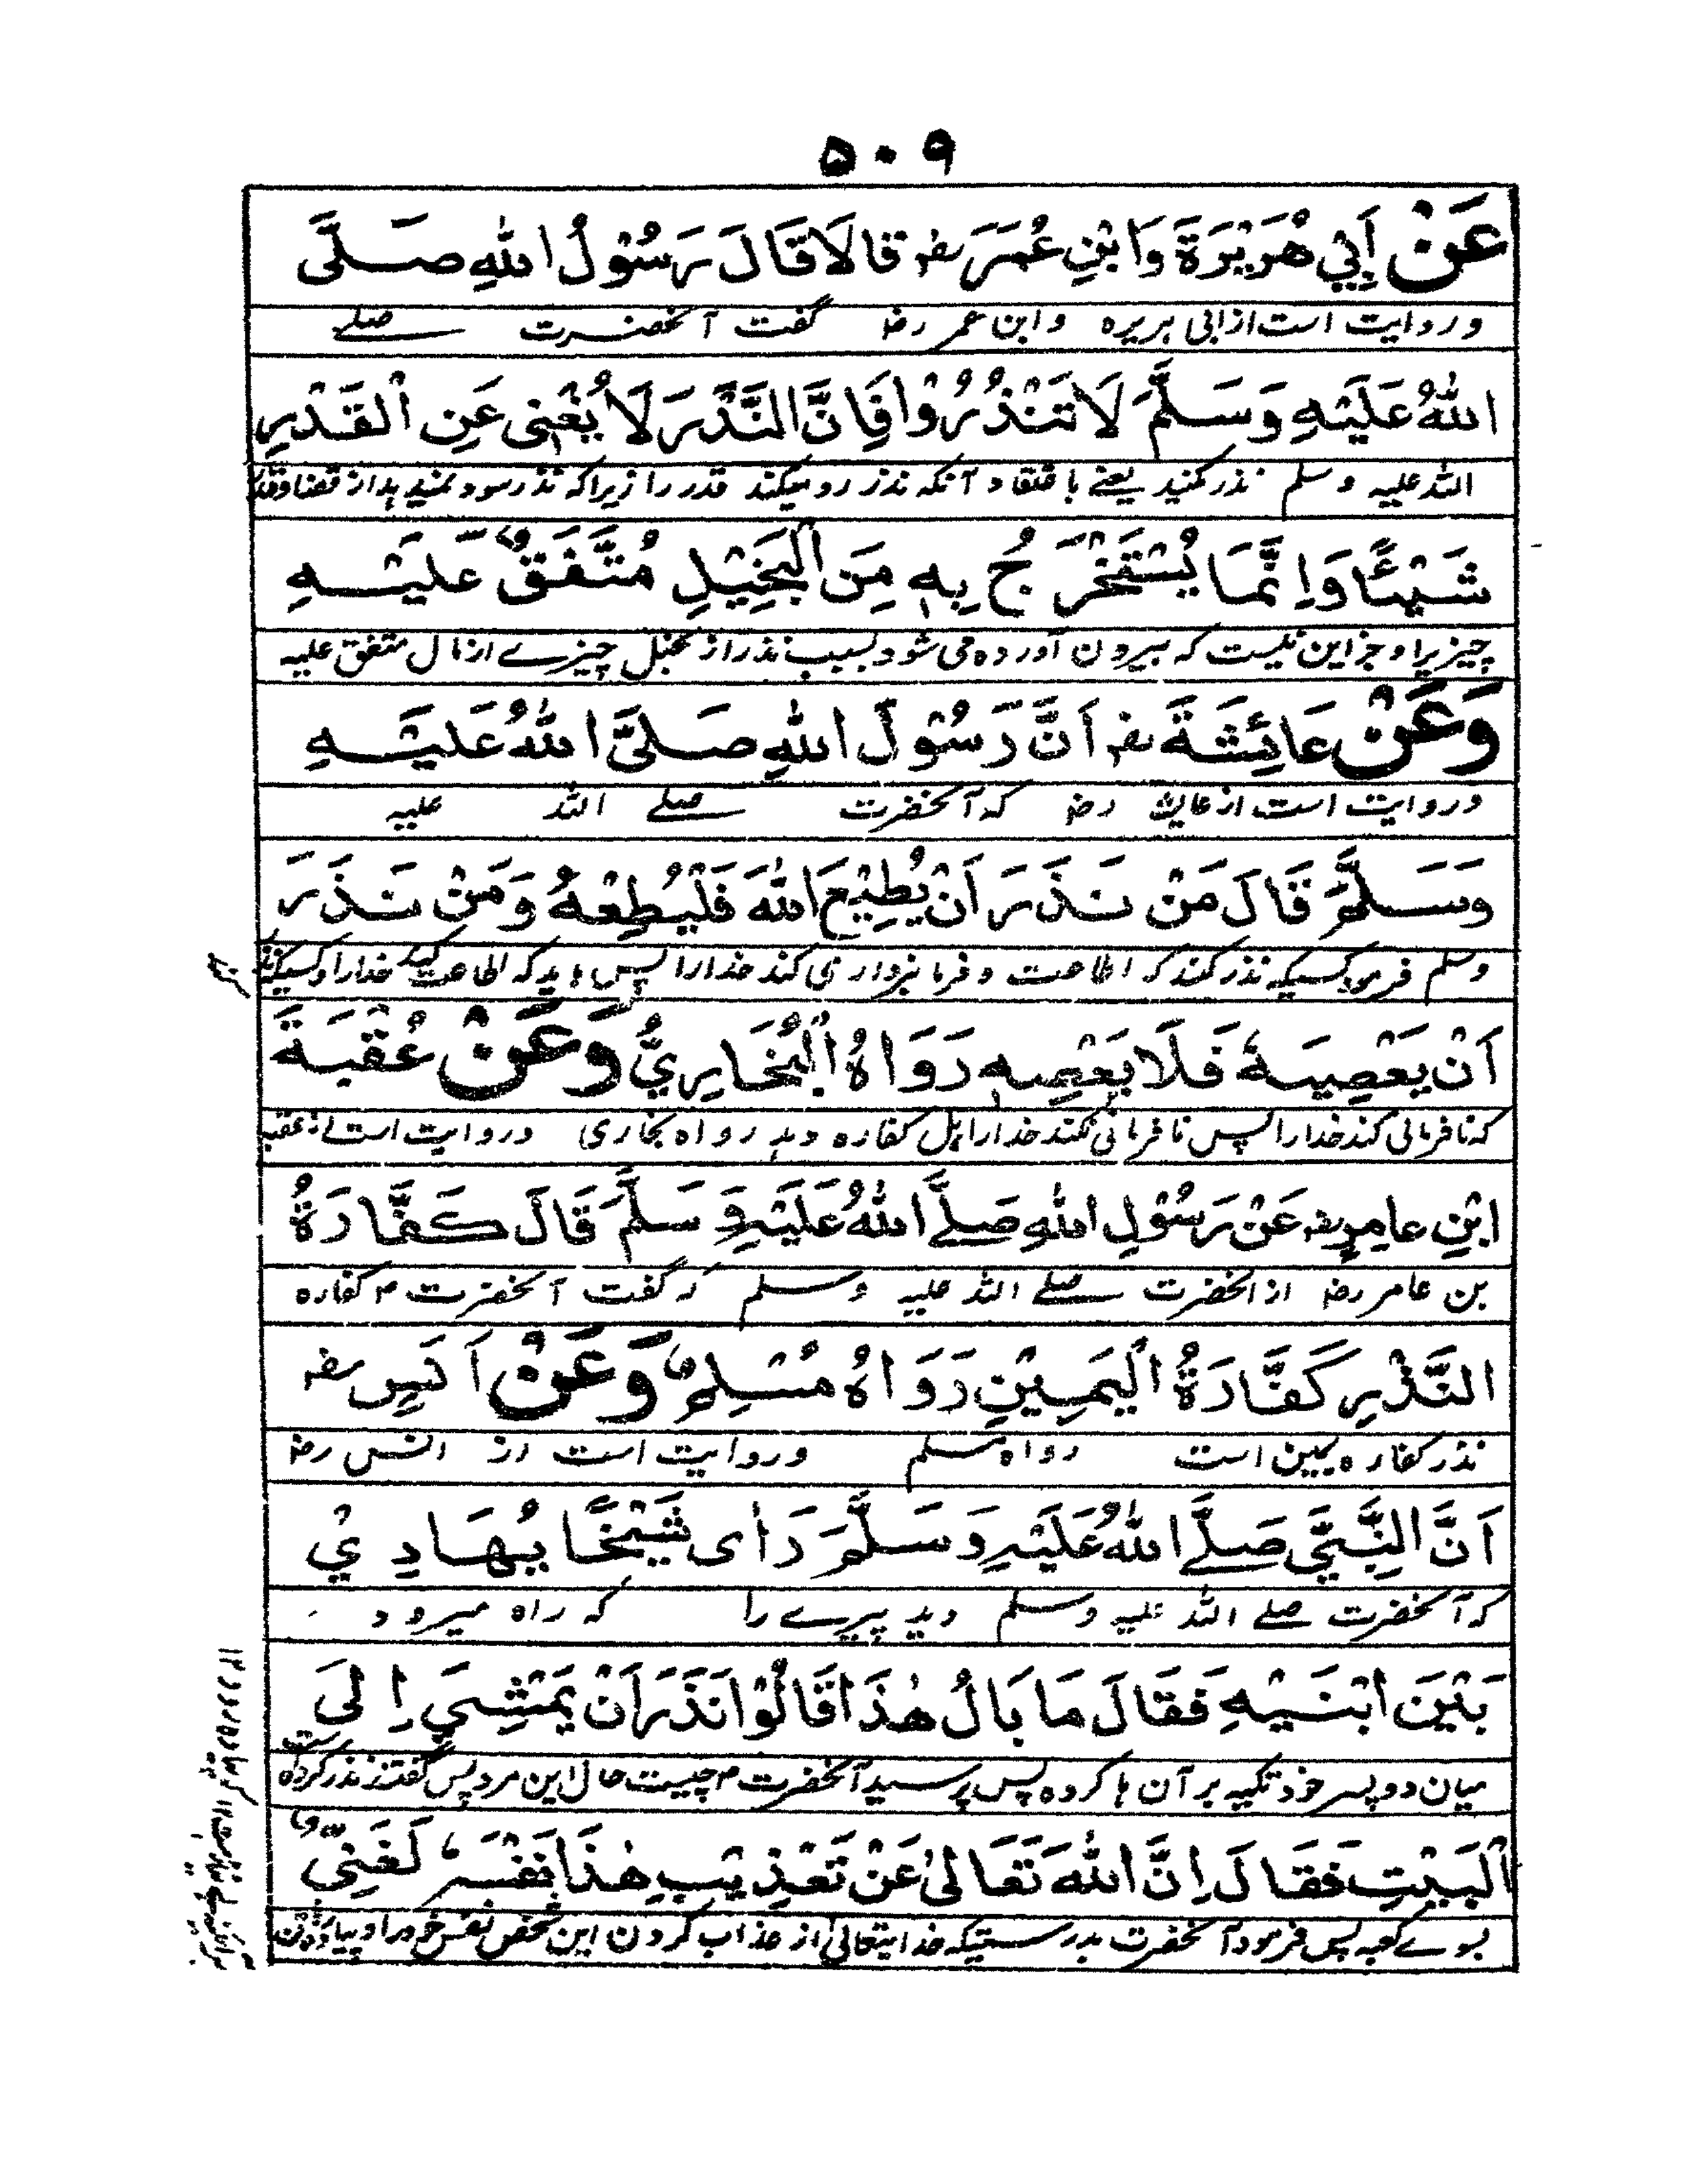 ۵۰۹
عَنْ أَبِيْ هُرَيْرَةَ وَابْنِ عُمَرَ رضـ قَالَا قَالَ رَسُوْلُ اللهِ صَلَّى
و روایت است از ابی ہریرہ و ابن عمر رضـ گفت آنحضرت صلے
اللهُ عَلَيْهِ وَسَلَّمَ لَا تَنْذُرُوْا فَاِنَّ النَّذْرَ لَا يُغْنِى عَنِ الْقَدْرِ
اللہ علیہ و سلم نذر مکنید یعنے باعتقاد آنکہ نذر رد میکند قدر را زیرا کہ نذر سود نمیدہد از قضا و قدر
شَيْئًا وَاِنَّمَا يُسْتَخْرَجُ بِهٖ مِنَ الْبَخِيْلِ مُتَّفَقٌ عَلَيْهِ
چیزیرا و جز این نیست کہ بیرون آوردہ می شود بسبب نذر از بخیل چیزے از مال متفق علیہ
وَعَنْ عَائِشَةَ رضـ اَنَّ رَسُوْلَ اللهِ صَلَّى اللهُ عَلَيْهِ
و روایت است از عایشہ رضـ کہ آنحضرت صلے اللہ علیہ
وَسَلَّمَ قَالَ مَنْ نَذَرَ اَنْ يُطِيْعَ اللهَ فَلْيُطِعْهُ وَمَنْ نَذَرَ
وسلم فرمود کسیکہ نذر کند کہ اطاعت و فرمانبرداری کند خدا را پس باید کہ اطاعت کند خدا را و کسیکہ نذر
کند
اَنْ يَعْصِيَهٗ فَلَا يَعْصِهٖ رَوَاهُ الْبُخَارِيُّ وَعَنْ عُقْبَةَ
کہ نافرمانی کند خدا را پس نافرمانی نکند خدا را بل کفارہ دہد رواہ بخاری و روایت است از عقبہ
ابْنِ عَامِرٍ رضـ عَنْ رَسُوْلِ اللهِ صَلَّے اللهُ عَلَيْهِ وَسَلَّمَ قَالَ كَفَّارَةُ
بن عامر رضـ از آنحضرت صلے اللہ علیہ وسلم کہ گفت آنحضرت ؐ کفارہ
النَّذْرِ كَفَّارَةُ الْيَمِيْنِ رَوَاهُ مُسْلِمٌ وَعَنْ اَنَسٍ رضـ
نذر کفارہ یمین است رواہ مسلم و روایت است از انس رضـ
اَنَّ النَّبِيَّ صَلَّے اللهُ عَلَيْهِ وَسَلَّمَ رَاٰى شَيْخًا يُهَادِيْ
کہ آنحضرت صلے اللہ علیہ وسلم دید پیرے را کہ راہ میرود
بَيْنَ ابْنَيْهِ فَقَالَ مَا بَالُ هٰذَا قَالُوْا نَذَرَ اَنْ يَمْشِيَ اِلَى
میان دو پسر خود تکیہ بر آن ہا کردہ پس پرسید آنحضرت ؐ چیست حال این مرد پس گفتند نذر کردہ است
الْبَيْتِ فَقَالَ اِنَّ اللهَ تَعَالٰى عَنْ تَعْذِيْبِ هٰذَا نَفْسَهٗ لَغَنِيٌّ
بسوے کعبہ پس فرمود آنحضرت بدرستیکہ خدایتعالیٰ از عذاب کردن این شخص نفس خود را